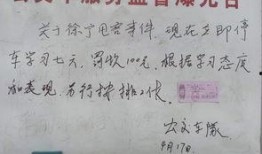 公交车服务监督曝光台
关于徐丁甩客事件，现在立即停
车学习七天，罚款100元，根据学习态度
和表现，另行安排工作
公交车队
4月17日